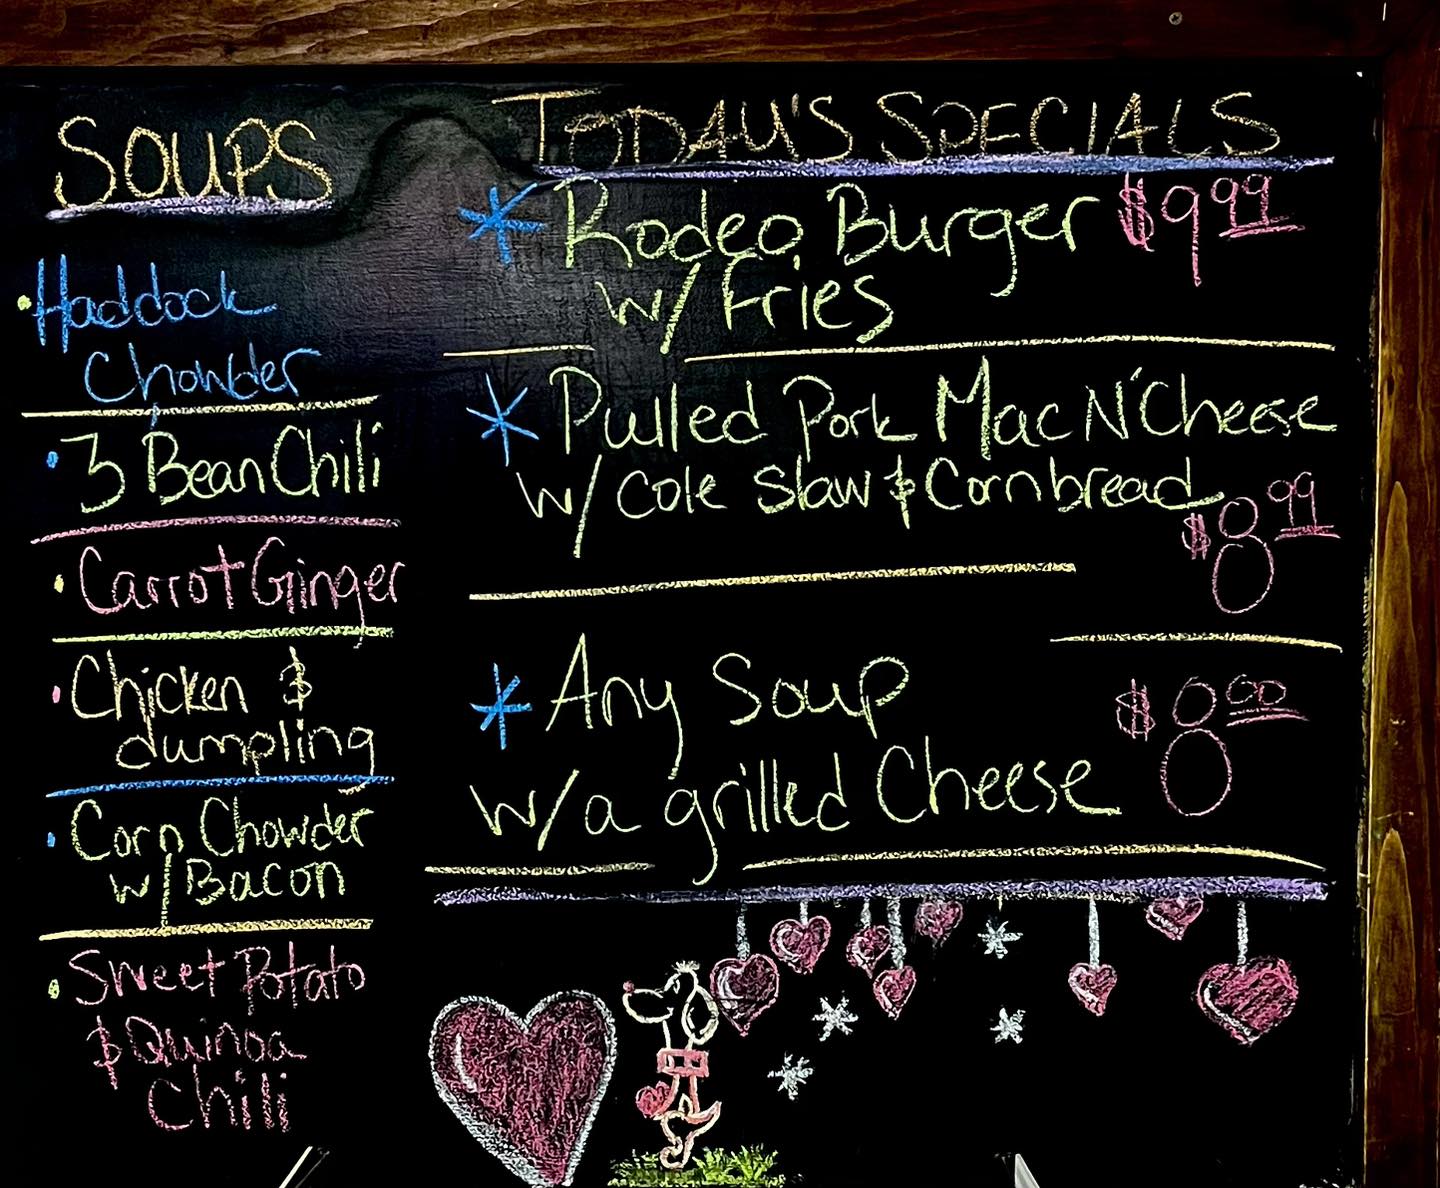 SOUPS
• Haddock
Chowder
• 3 Bean Chili
• Carrot Ginger
• Chicken &
dumpling
• Corn Chowder
w/ Bacon
• Sweet Potato
& Quinoa
Chili
TODAY'S SPECIALS
* Rodeo Burger $9.99
w/ Fries
* Pulled Pork Mac N' Cheese
w/ Cole slaw & Cornbread
$8.99
* Any Soup $8.00
w/ a grilled Cheese